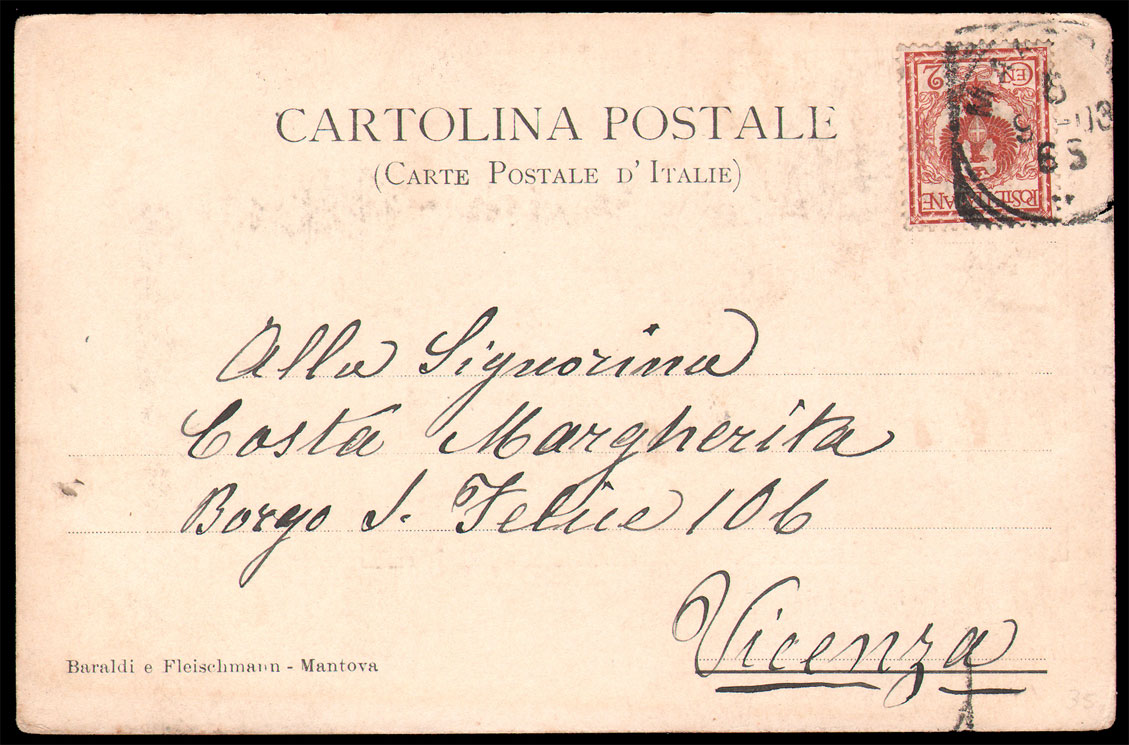 CARTOLINA POSTALE
(CARTE POSTALE D'ITALIE)
CEN 2
POSTE ITALIANE
03
6 S
Alla Signorina
Costa Margherita
Borgo S. Felice 106
Vicenza
Baraldi e Fleischmann - Mantova
35